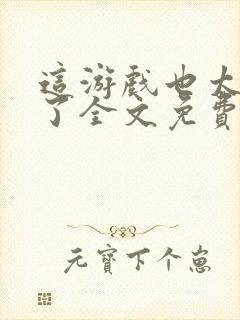 這游戲也太
了全文免費
元寶下个崽